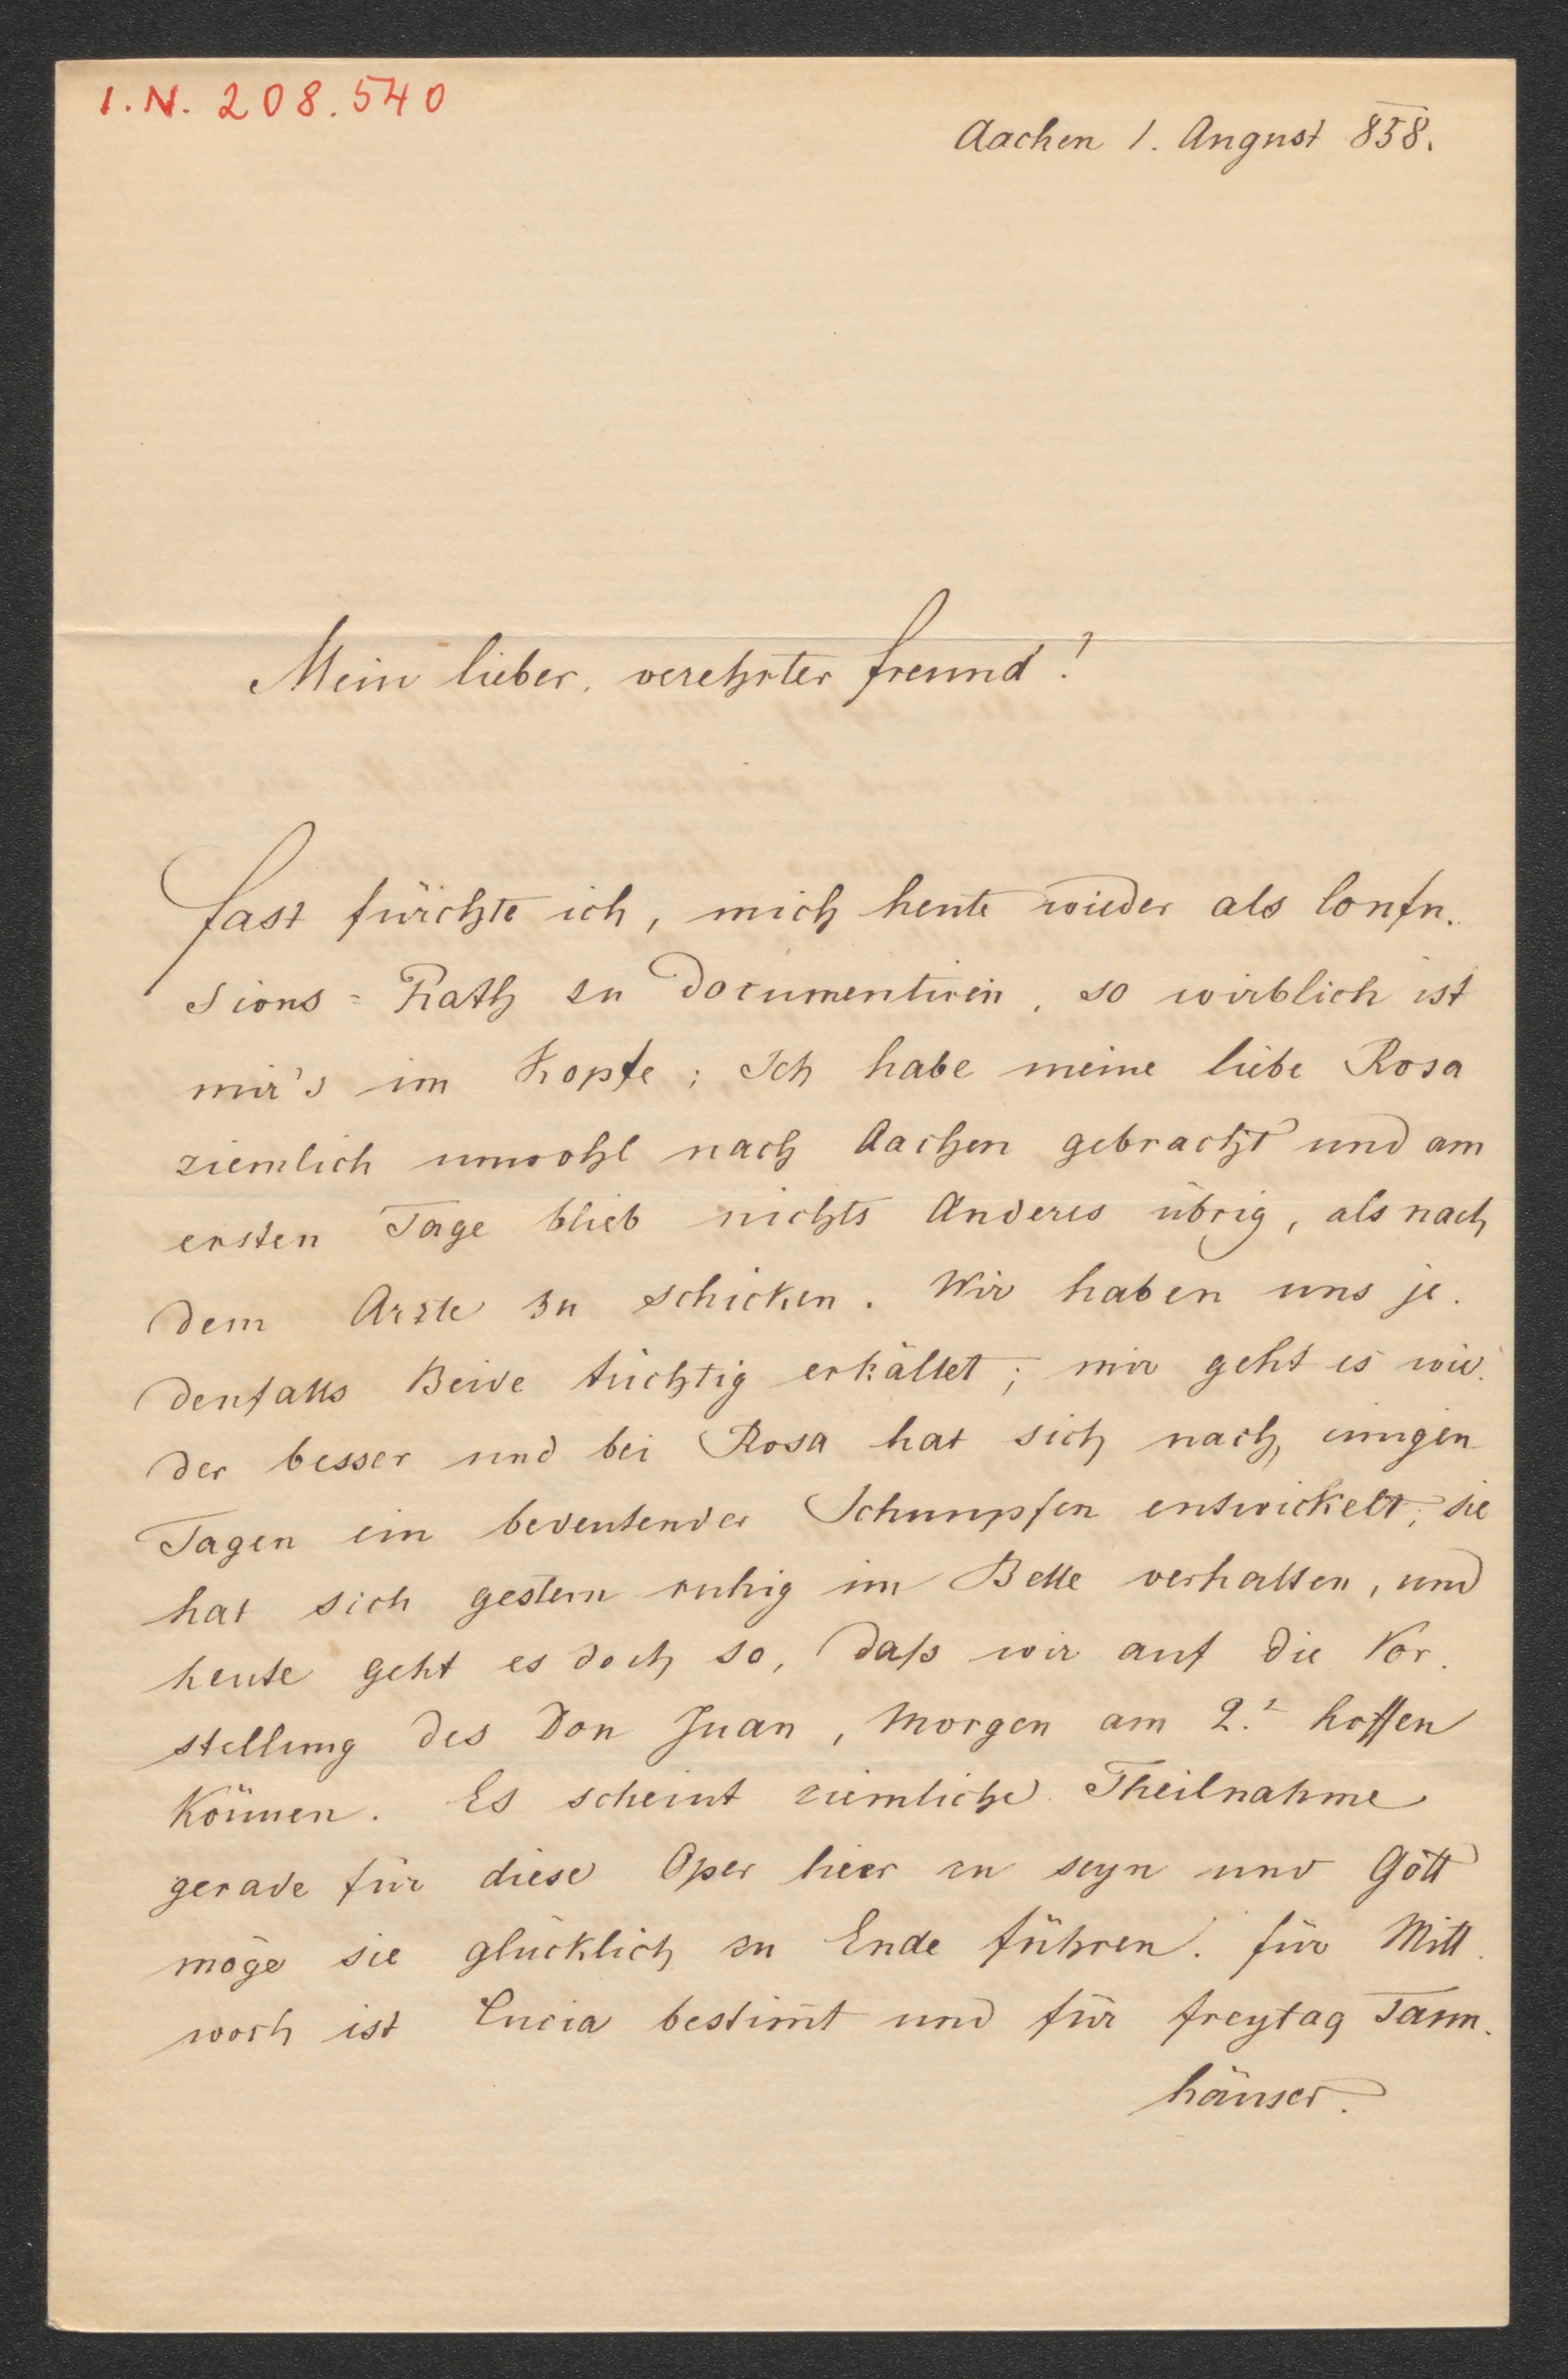 I.N. 208.540
Aachen 1. August 858.
Mein lieber, verehrter Freund!
Fast fürchte ich, mich heute wieder als Confu-
sions=Rath zu documentiren, so wirblich ist
mir's im Kopfe; Ich habe meine liebe Rosa
ziemlich unwohl nach Aachen gebracht und am
ersten Tage blieb nichts Anderes übrig, als nach
dem Arzte zu schicken. Wir haben uns je-
denfalls Beide tüchtig erkältet; mir geht es wie-
der besser und bei Rosa hat sich nach einigen
Tagen ein bedeutender Schnupfen entwickelt; sie
hat sich gestern ruhig im Bette verhalten, und
heute geht es doch so, daß wir auf die Vor-
stellung des Don Juan, Morgen am 2.t hoffen
können. Es scheint ziemliche Theilnahme
gerade für diese Oper hier zu seyn und Gott
möge sie glücklich zu Ende führen. Für Mitt-
woch ist Lucia bestim̅t und für Freytag Tann-
häuser.